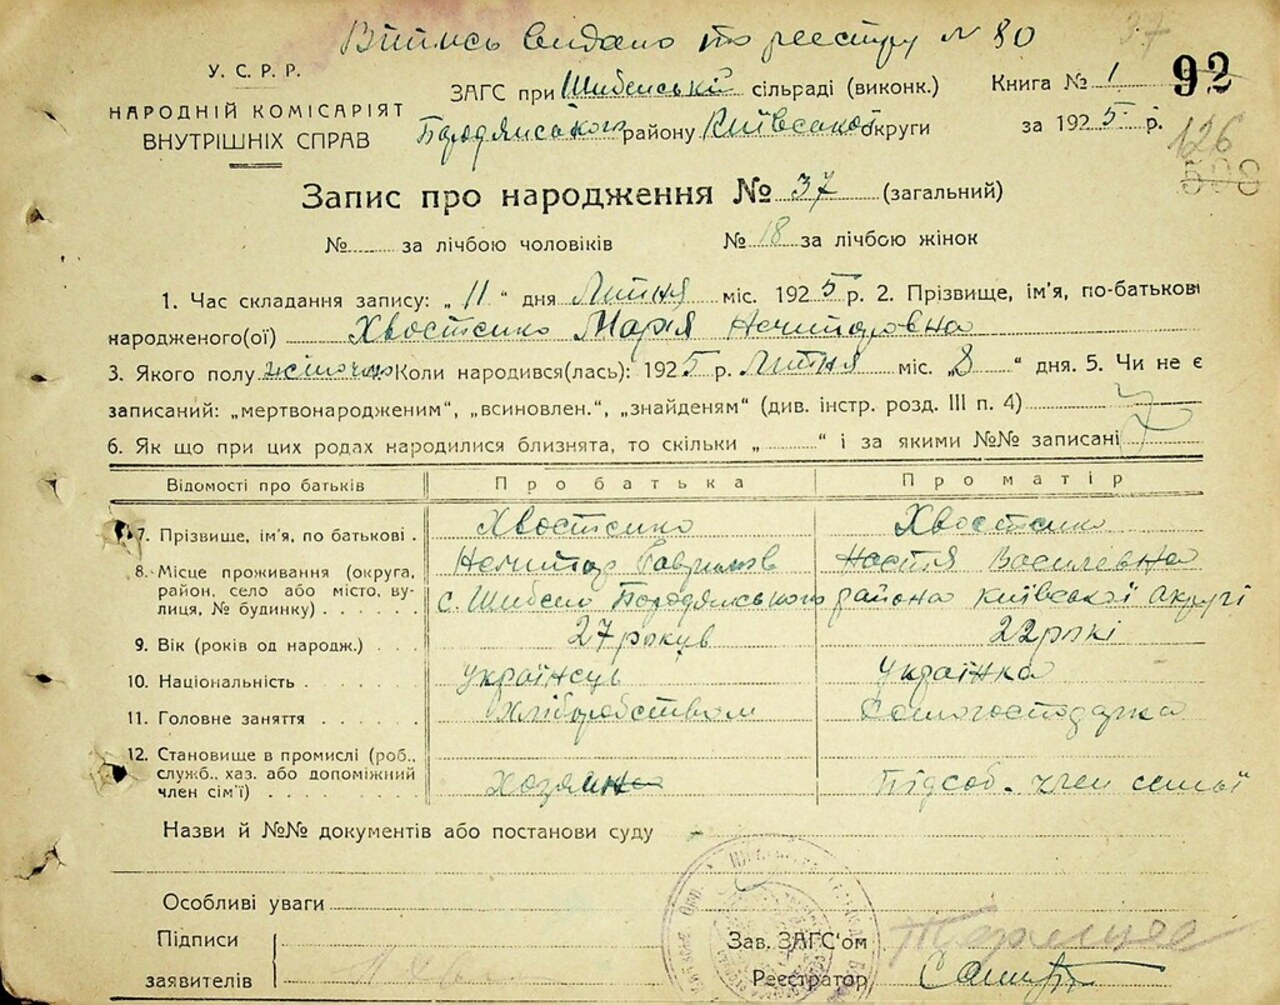 Витись видано по реєстру № 80
37
У. С. Р. Р.
НАРОДНІЙ КОМІСАРІЯТ
ВНУТРІШНІХ СПРАВ
ЗАГС при Шибенській сільраді (виконк.)
Бородянського району Київської округи
Книга № 1
за 1925 р.
92
126
508
Запис про народження № 37 (загальний)
№ за лічбою чоловіків № 18 за лічбою жінок
1. Час складання запису: „ 11 “ дня Липня міс. 1925 р. 2. Прізвище, ім'я, по-батькові
народженого(ої) Хвостенко Марія Ничипоровна
3. Якого полу жіночого Коли народився(лась): 1925 р. Липня міс. „ 8 “ дня. 5. Чи не є
записаний: „мертвонародженим“, „всиновлен.“, „знайденям“ (див. інстр. розд. III п. 4)
6. Як що при цих родах народилися близнята, то скільки „ “ і за якими №№ записані
Відомості про батьків Про батька Про матір
7. Прізвище, ім'я, по батькові . Хвостенко Хвостенко
Ничипор Гаврилов Настія Василевна
8. Місце проживання (округа, район, село або місто, вулиця, № будинку) с. Шибено Бородянського района Київської округі
9. Вік (років од народж.) 27 рокув 22 рокі
10. Національність Українець Українка
11. Головне заняття Хліборобством Домогосподарка
12. Становище в промислі (роб., служб., хаз. або допоміжний член сім'ї) Хозяин Підсоб. член семьї
Назви й №№ документів або постанови суду
Особливі уваги
Підписи
заявителів
Зав. ЗАГС'ом
Реєстратор